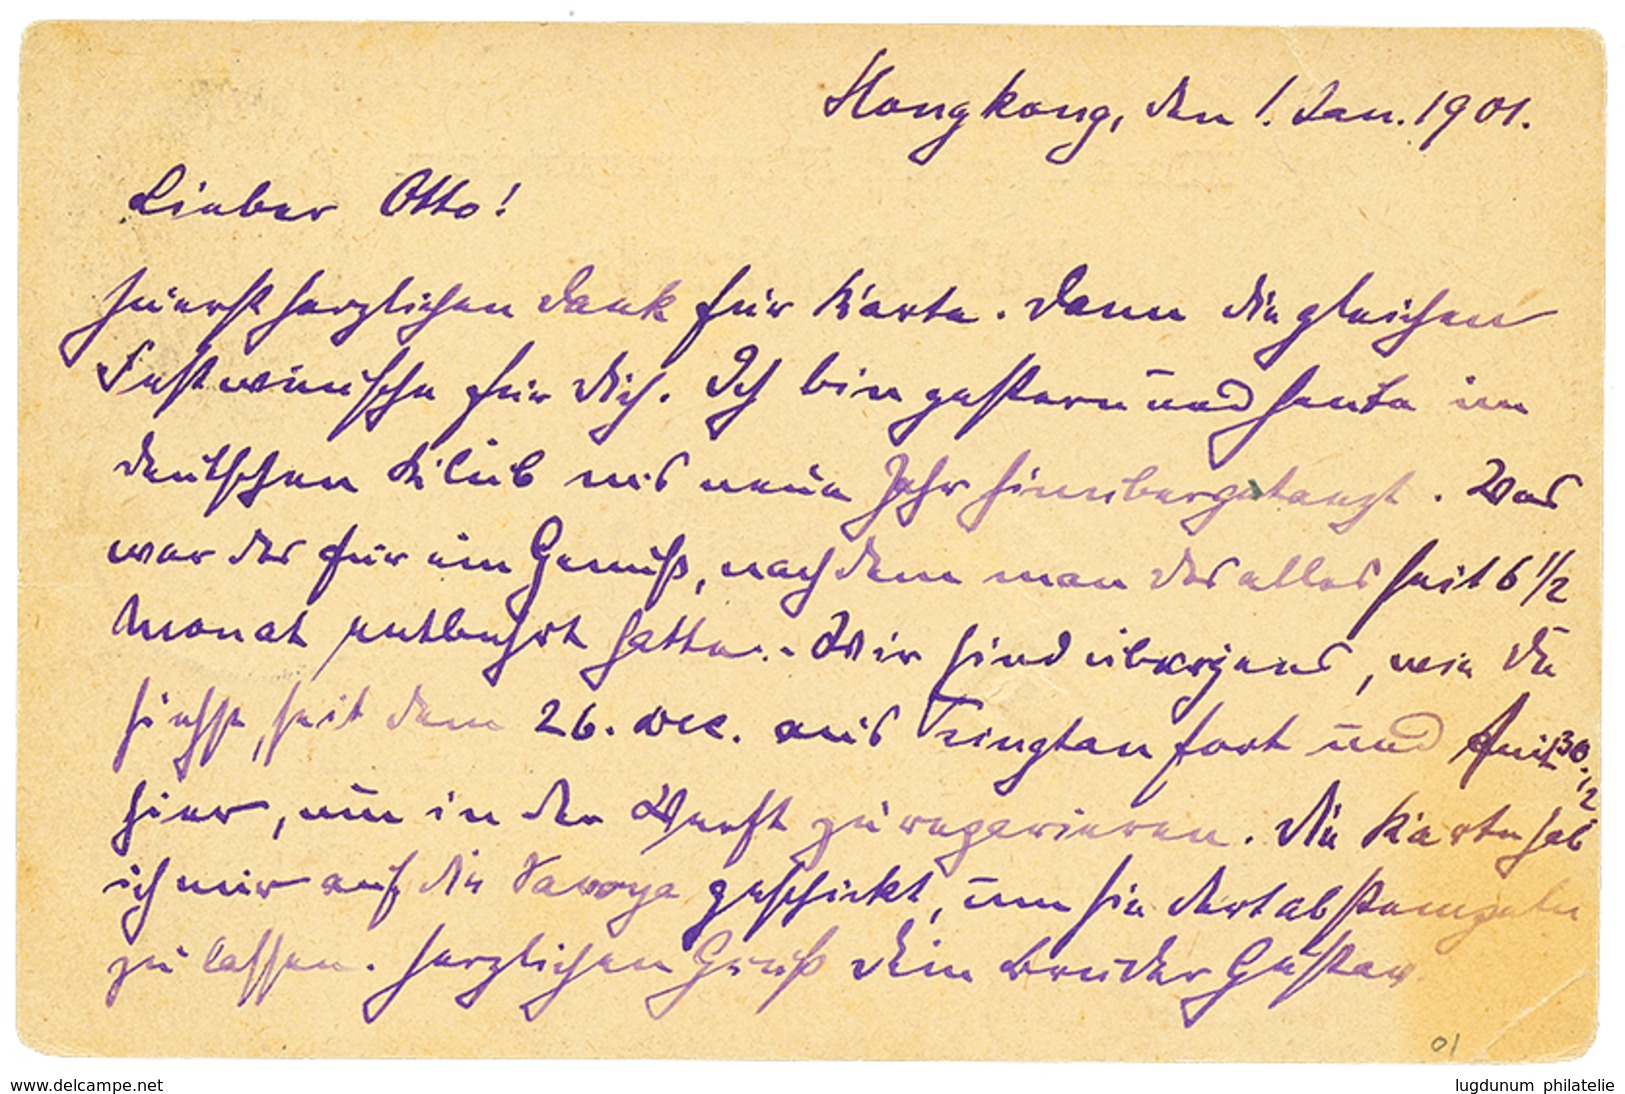 Hongkong, den 1. Jan. 1901.
Lieber Otto!
Zuerst herzlichen Dank für Karte. Dann die gleichen
Festwünsche für Dich. Ich bin gestern und heute im
deutschen Klub ins neue Jahr hinübergetanzt. Was
war das für ein Genuß, nachdem man das alles seit 6 1/2
Monat entbehrt hatte. - Wir sind übrigens, wie Du
siehst, seit dem 26. Dec. aus Tsingtau fort und seit 30.12
hier, um in der Werft zu reparieren. Die Karte hab
ich nur auf die Savoya geschickt, um sie dort abstempeln
zu lassen. Herzlichen Gruß Dein Bruder Gustav.
01
www.delcampe.net
lugdunum philatelie